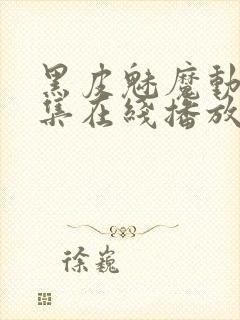 黑皮魅魔動
集在綫播放
徐巍